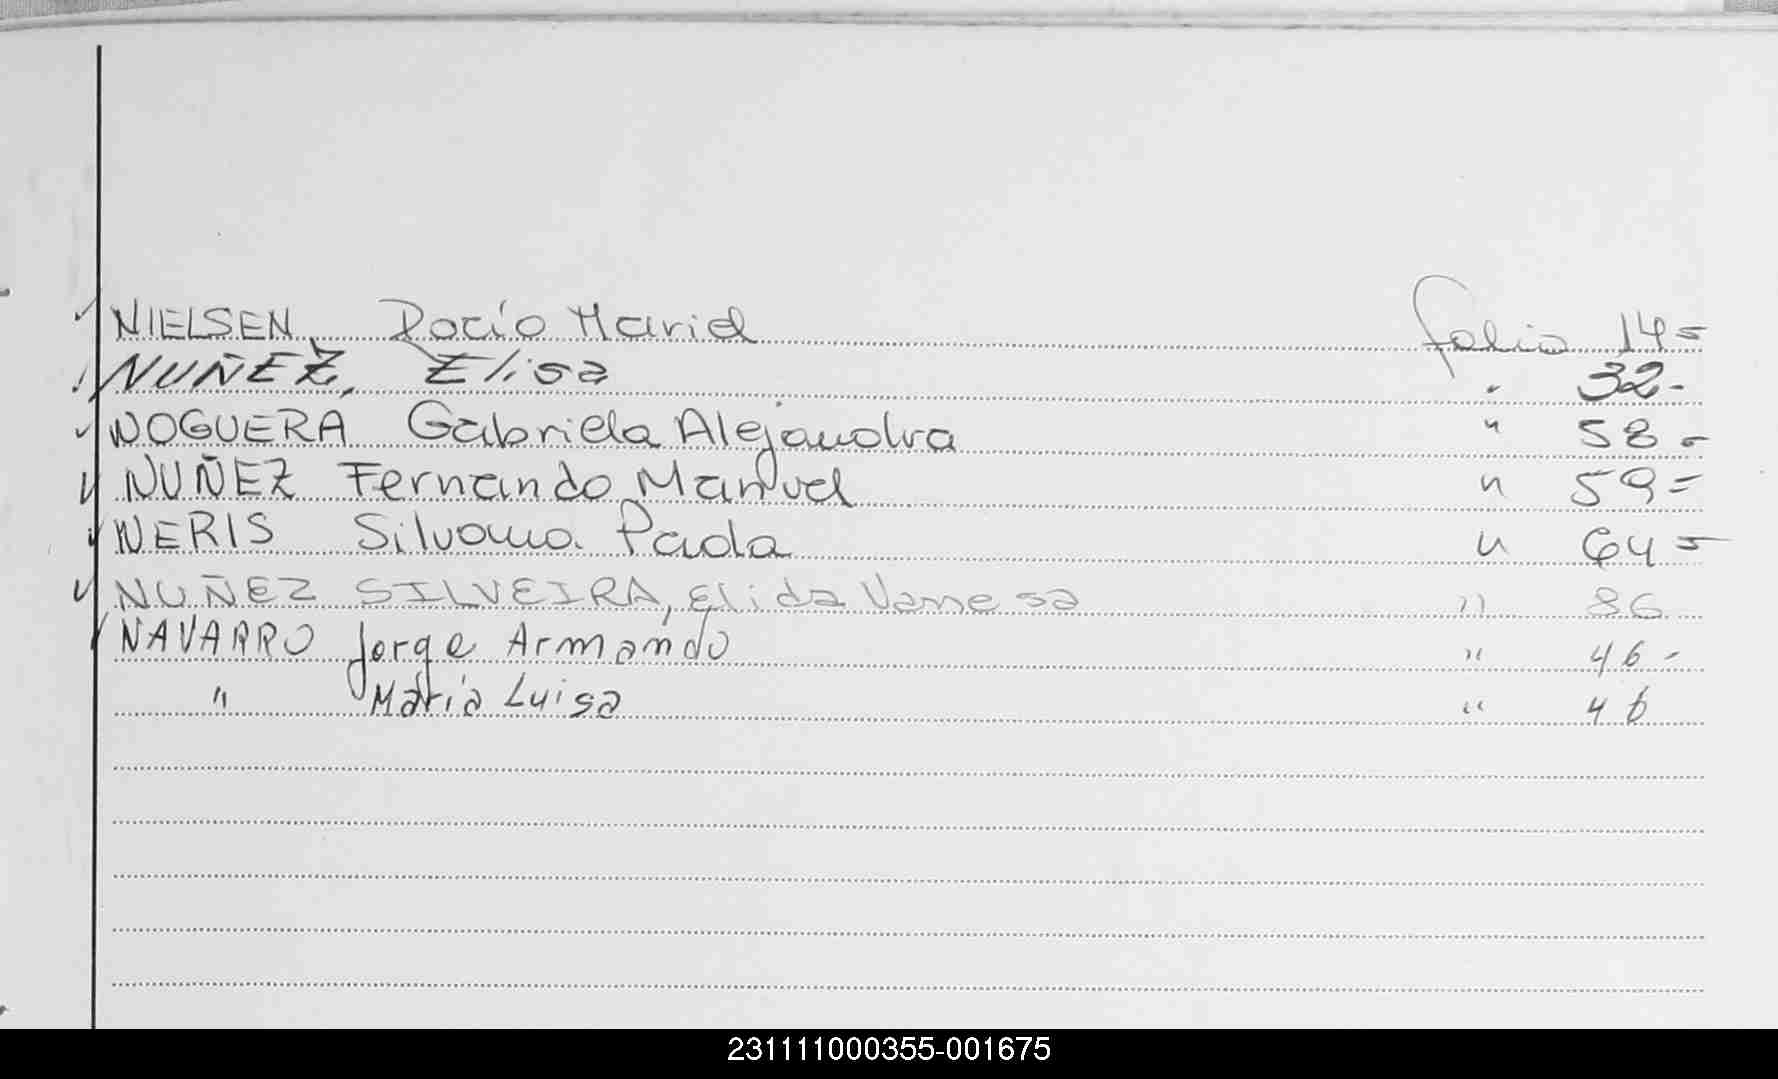 ✓ NIELSEN, Rocío Mariel folio 14=
✓ NUÑEZ, Elisa " 32-
✓ NOGUERA Gabriela Alejandra " 58-
✓ NUÑEZ Fernando Manuel " 59=
✓ NERIS Silvana Paola " 64=
✓ NUÑEZ SILVEIRA, Elida Vanesa " 86
✓ NAVARRO Jorge Armando " 46-
" María Luisa " 46
231111000355-001675